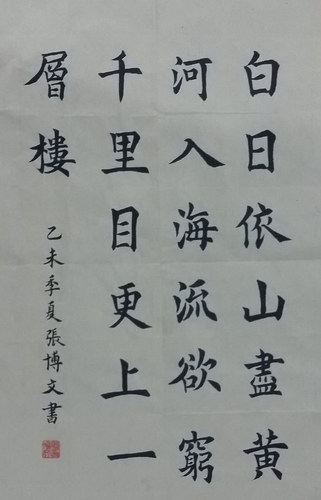 白日依山盡黃
河入海流欲窮
千里目更上一
層樓
乙未季夏張博文書